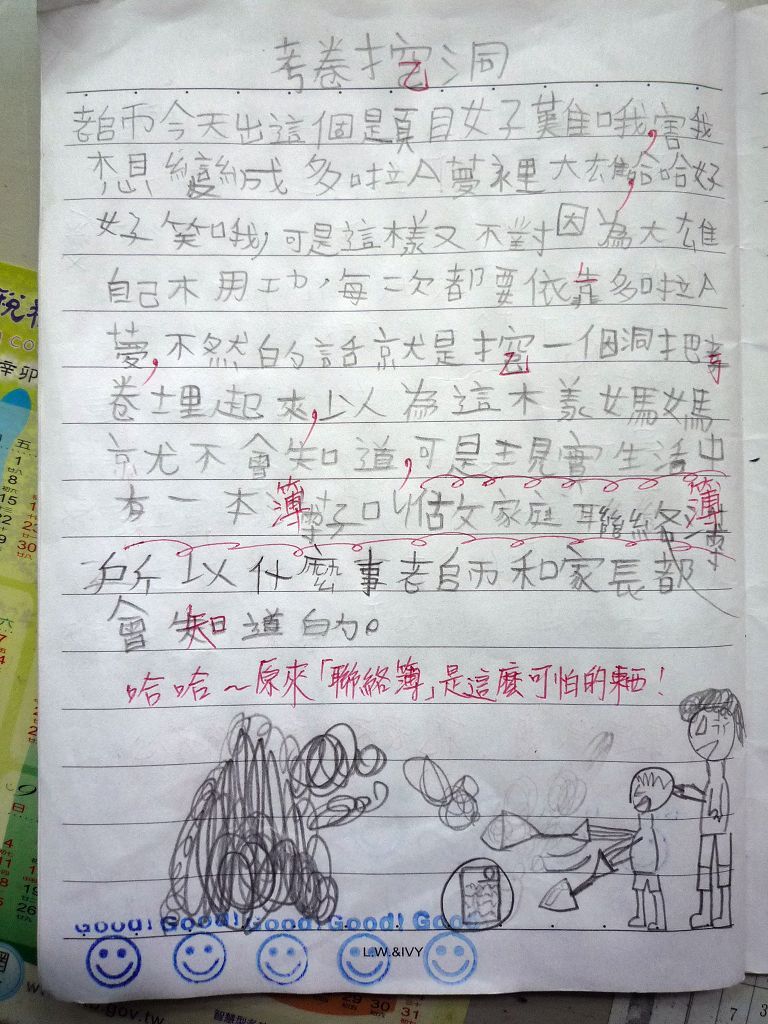 考卷挖洞
老師今天出這個題目好難哦,害我
想變成多啦A夢裡大雄,哈哈好
好笑哦,可是這樣又不對因為大雄
自己不用功,每一次都要依靠多啦A
夢,不然的話就是挖一個洞把考
卷埋起來,以為這木義媽媽
就不會知道,可是現實生活中
有一本簿子叫做家庭聯絡簿
所以什麼事老師和家長都
會知道的。
哈哈~原來「聯絡簿」是這麼可怕的東西!
Good! Good! Good! Good! Good
L.W.&IVY